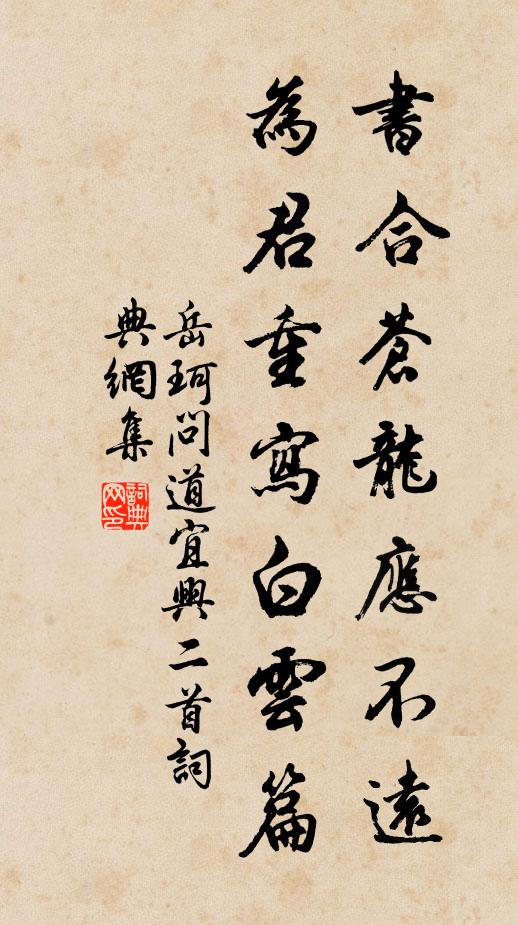 書合蒼龍應不遠
為君重寫白雲篇
岳珂問道宜興二首詞
典網集
詞典
网印